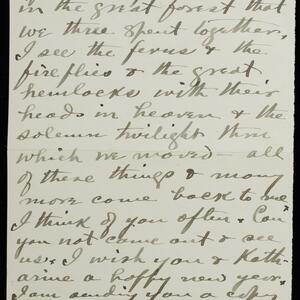 in the great forest that
we three spent together.
I see the ferns & the
fireflies & the great
hemlocks with their
heads in heaven & the
solemn twilight thru
which we moved — all
of these things & many
more come back to me.
I think of you often. Can
you not come out & see
us. I wish you & Kath-
arine a happy new year.
I am sending you a copy